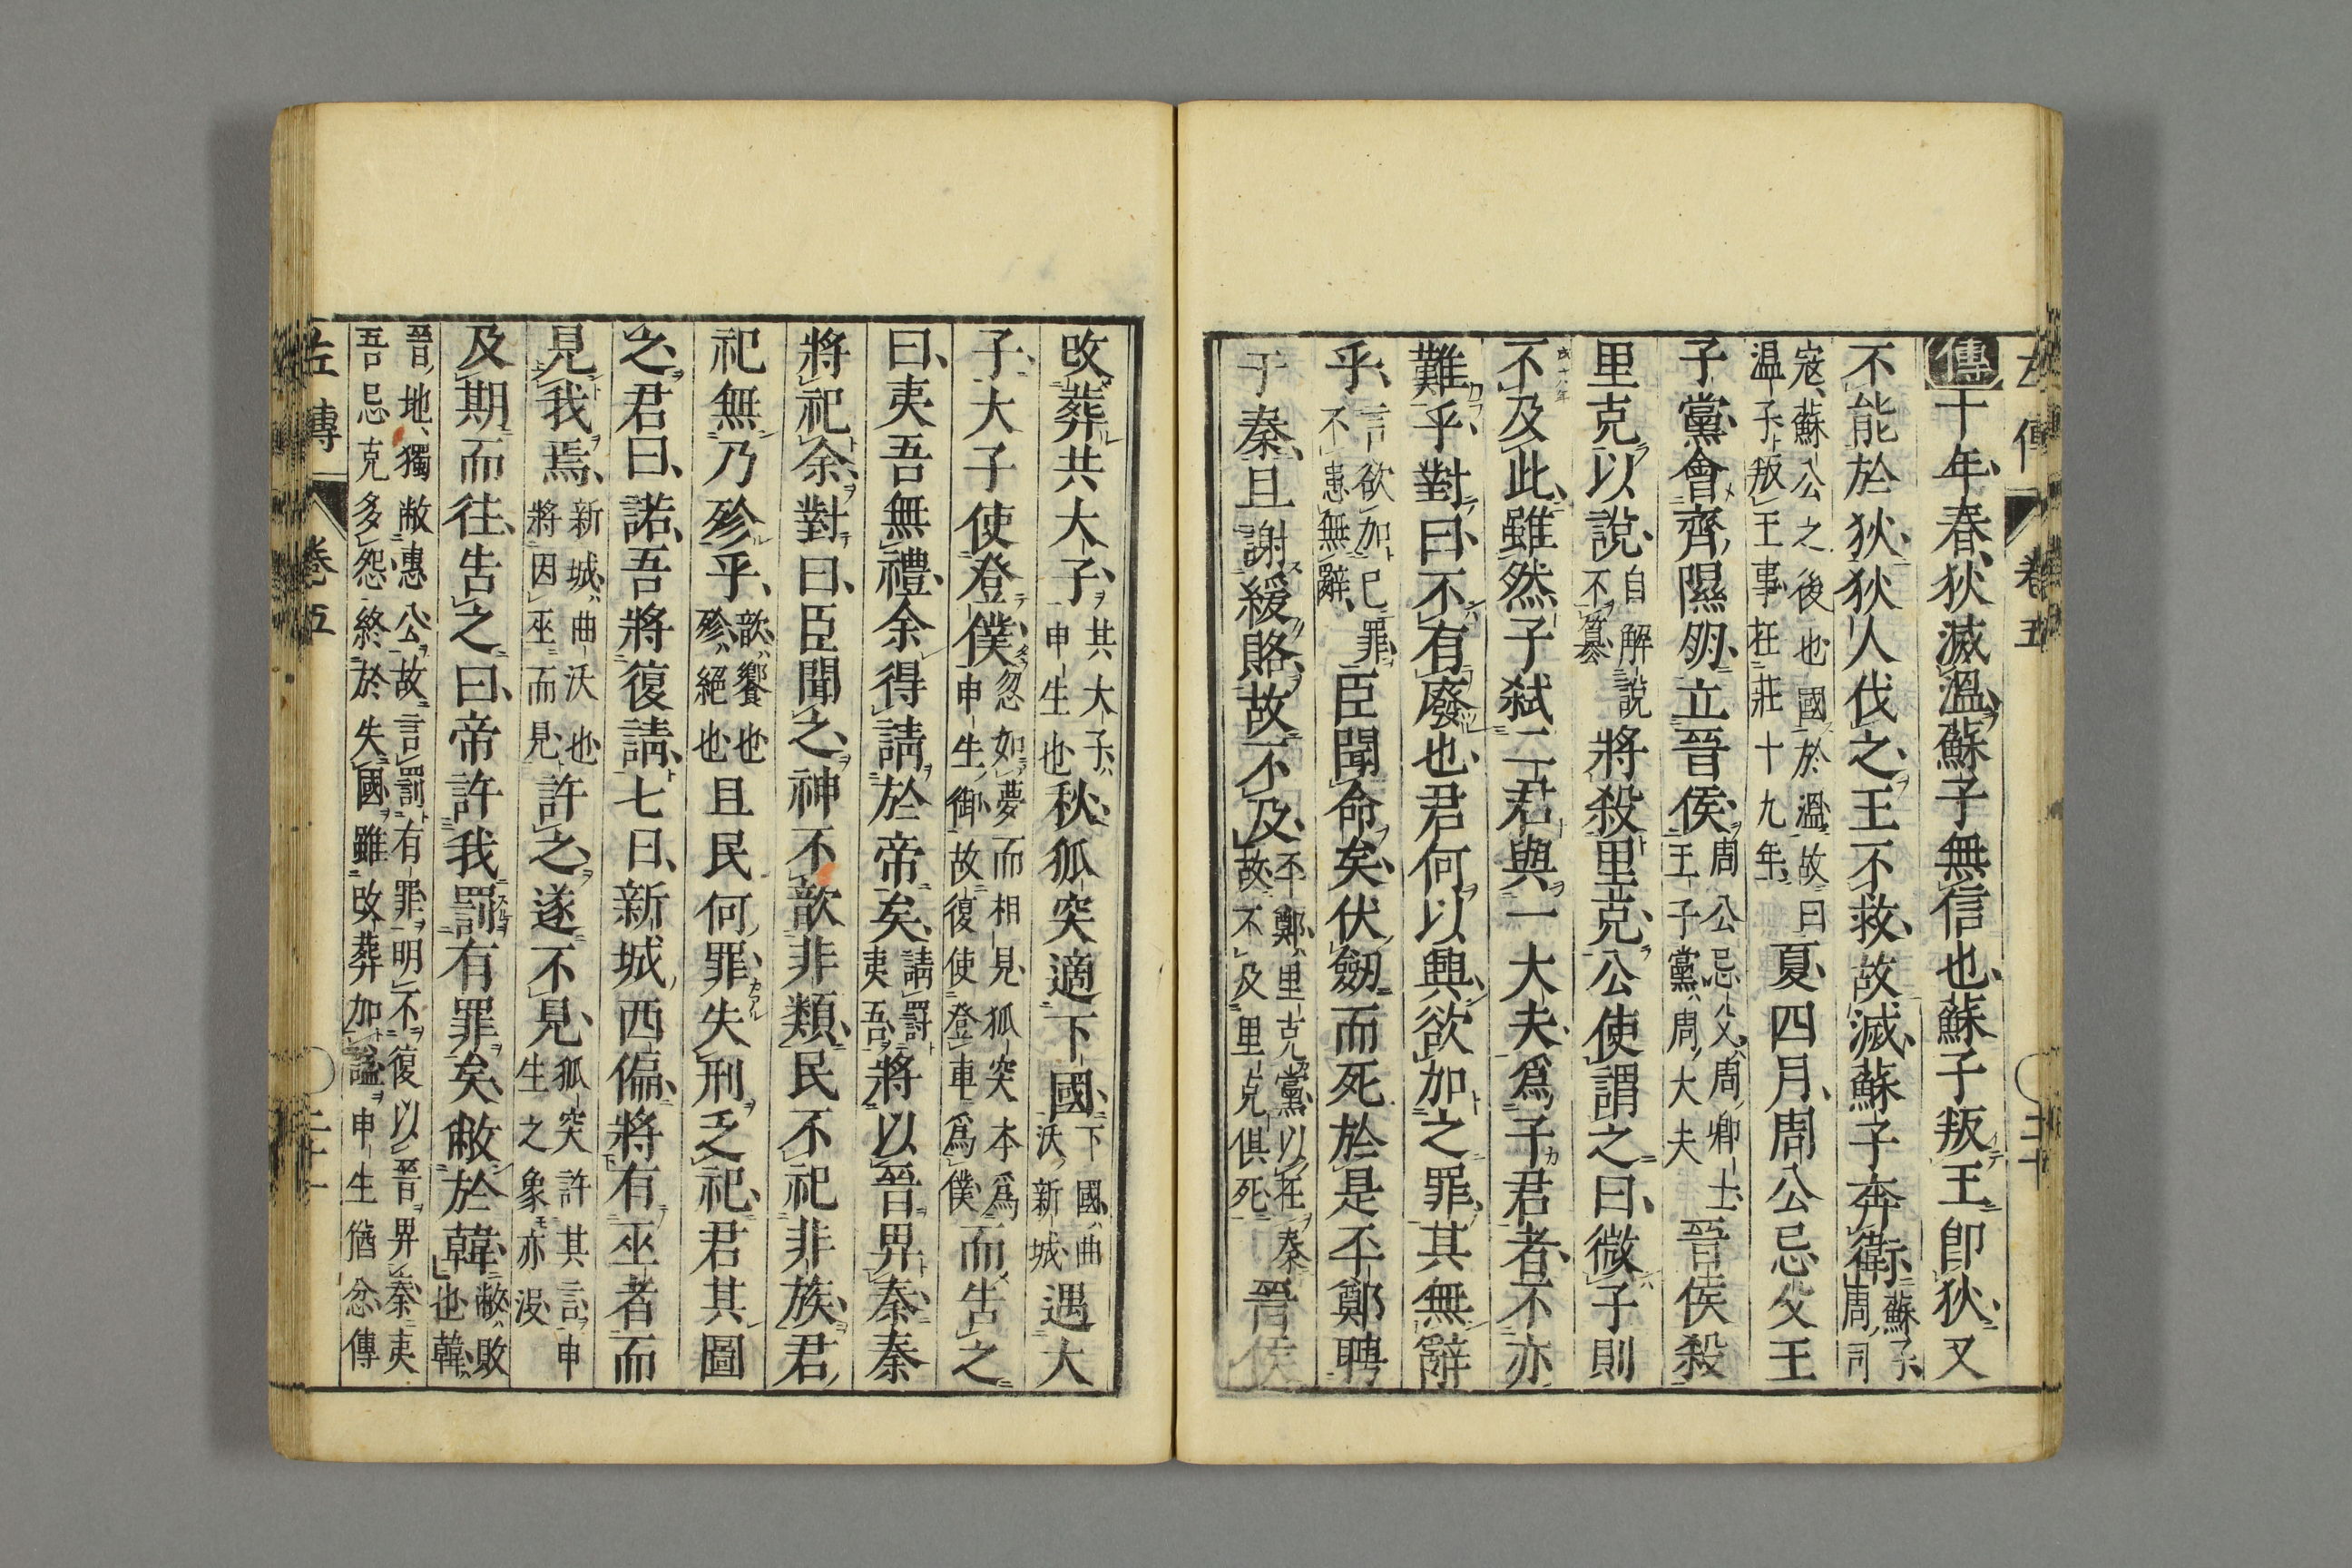 傳十年春狄滅溫蘇子無信也蘇子叛王即狄又
不能於狄狄人伐之王不救故滅蘇子奔衛蘇子周司
寇蘇公之後也國於溫故曰溫子叛王事在莊十九年夏四月周公忌父王
子黨會齊隰朋立晉侯周公忌父周卿士王子黨周大夫晉侯殺
里克以說自解說不篡將殺里克公使謂之曰微子則
不及此雖然子弒二君與一大夫爲子君者不亦
難乎對曰不有廢也君何以興欲加之罪其無辭
乎言欲加己罪不患無辭臣聞命矣伏劒而死於是丕鄭聘
于秦且謝緩賂故不及丕鄭里克黨以在秦故不及里克俱死晉侯
改葬共大子共大子申生也秋狐突適下國下國曲沃新城遇大
子大子使登僕忽如夢而相見狐突本爲申生御故復使登車爲僕而告之
曰夷吾無禮余得請於帝矣請罰夷吾將以晉畀秦秦
將祀余對曰臣聞之神不歆非類民不祀非族君
祀無乃殄乎歆饗也殄絕也且民何罪失刑乏祀君其圖
之君曰諾吾將復請七日新城西偏將有巫者而
見我焉新城曲沃也將因巫而見許之遂不見狐突許其言申生之象亦沒
及期而往告之曰帝許我罰有罪矣敝於韓敝敗也韓
晉地獨敝惠公故言罰有罪明不復以晉畀秦夷吾忌克多怨終於失國雖改葬加謚申生猶忿傳
左傳 卷五 二十
左傳 卷五 二十一